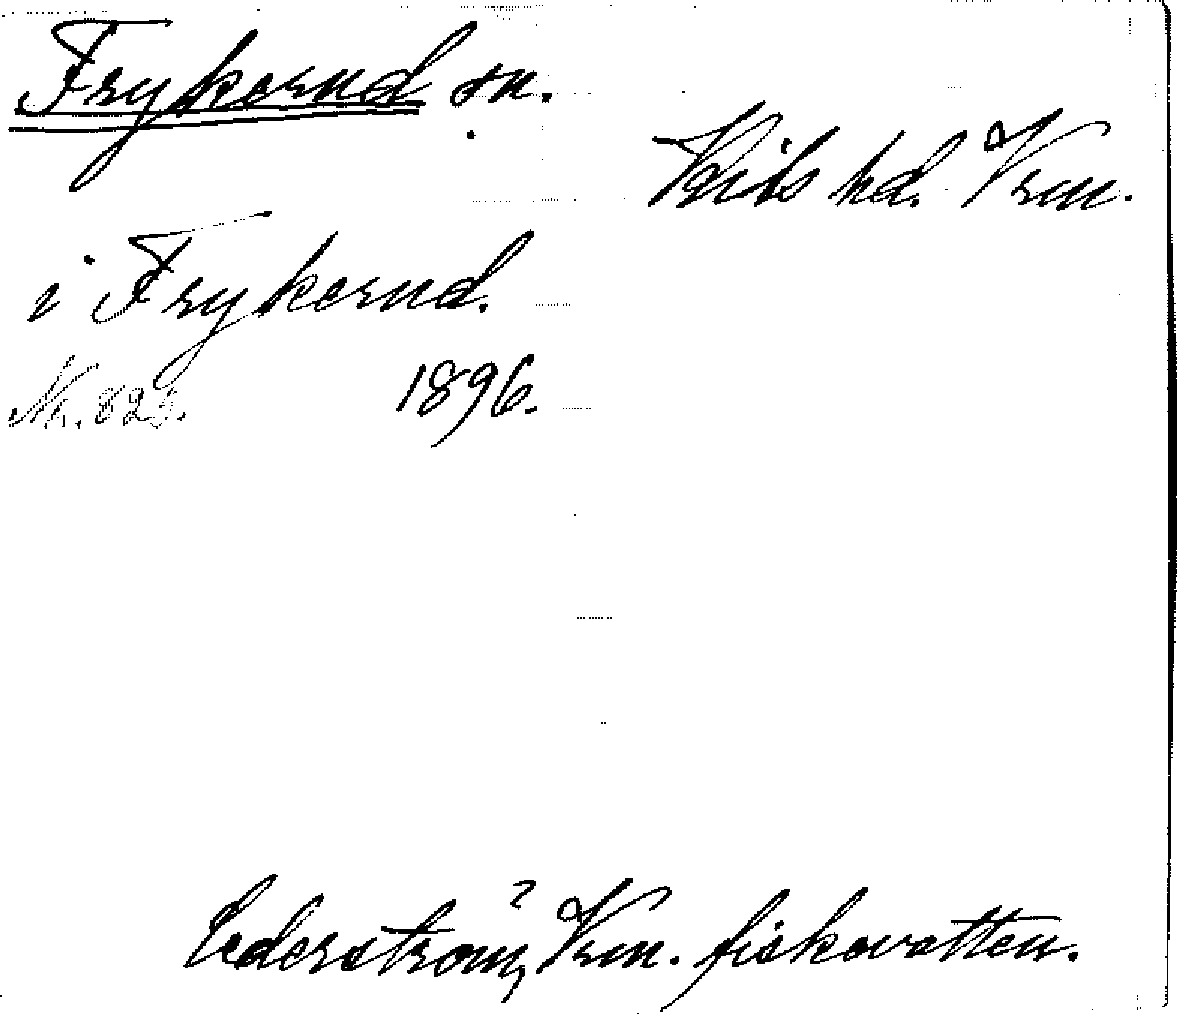 Frykerud sn.
Kils hd. Vrm.
i Frykerud.
Nr. 823. 1896.
Cederström, Vrm. fiskevatten.